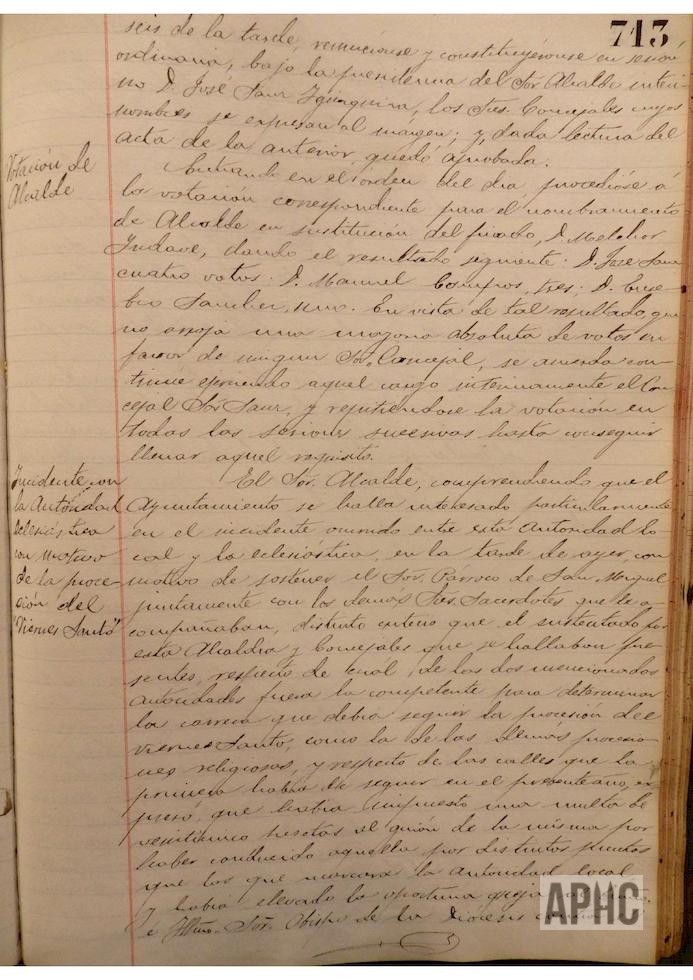 713
seis de la tarde, reunieronse y constituyeronse en sesión
ordinaria, bajo la presidencia del Sor Alcalde interi-
no D. José Saur, los Sres. Concejales cuyos
nombres se expresan al margen; y, dada lectura del
acta de la anterior, quedó aprobada.
Votación de
Alcalde
Entrando en el órden del dia, procedióse á
la votación correspondiente para el nombramiento
de Alcalde en sustitución del finado, D. Melchor
Yndave, dando el resultado siguiente: D. José Saur
cuatro votos: D. Manuel tres; D. Euse-
bio Sanchez, uno. En vista de tal resultado, que
no arroja una mayoria absoluta de votos en
favor de ningun Sor. Concejal, se acuerda con-
tinúe ejerciendo aquel cargo interinamente el Con-
cejal Sor Saur, y repitiendose la votación en
todas las sesiones sucesivas hasta conseguir
llenar aquel requisito.
Incidente con
la Autoridad
eclesiástica
con motivo
de la proce-
sión del
"Viernes Santo"
El Sor. Alcalde, comprendiendo que el
Ayuntamiento se halla interesado particularmente
en el incidente ocurrido entre esta Autoridad lo-
cal y la eclesiástica, en la tarde de ayer, con
motivo de sostener el Sor. Párroco de San Miguel
juntamente con los demas Sres. Sacerdotes que le a-
compañaban, distinto criterio que el sustentado por
esta Alcaldia y Concejales que se hallaban pre-
sentes, respecto de cual, de las dos mencionadas
autoridades fuera la competente para determinar
la carrera que debia seguir la procesión del
Viernes Santo, como la de las demas procesio-
nes religiosas, y respecto de las calles que la
primera habia de seguir en el presente año, ex-
puso, que habia impuesto una multa de
veinticinco pesetas al guión de la misma por
haber conducido aquella por distintos puntos
que los que marcara la autoridad local
y habia elevado la oportuna queja
é Illmo. Sor. Obispo de la Diócesis
APHC